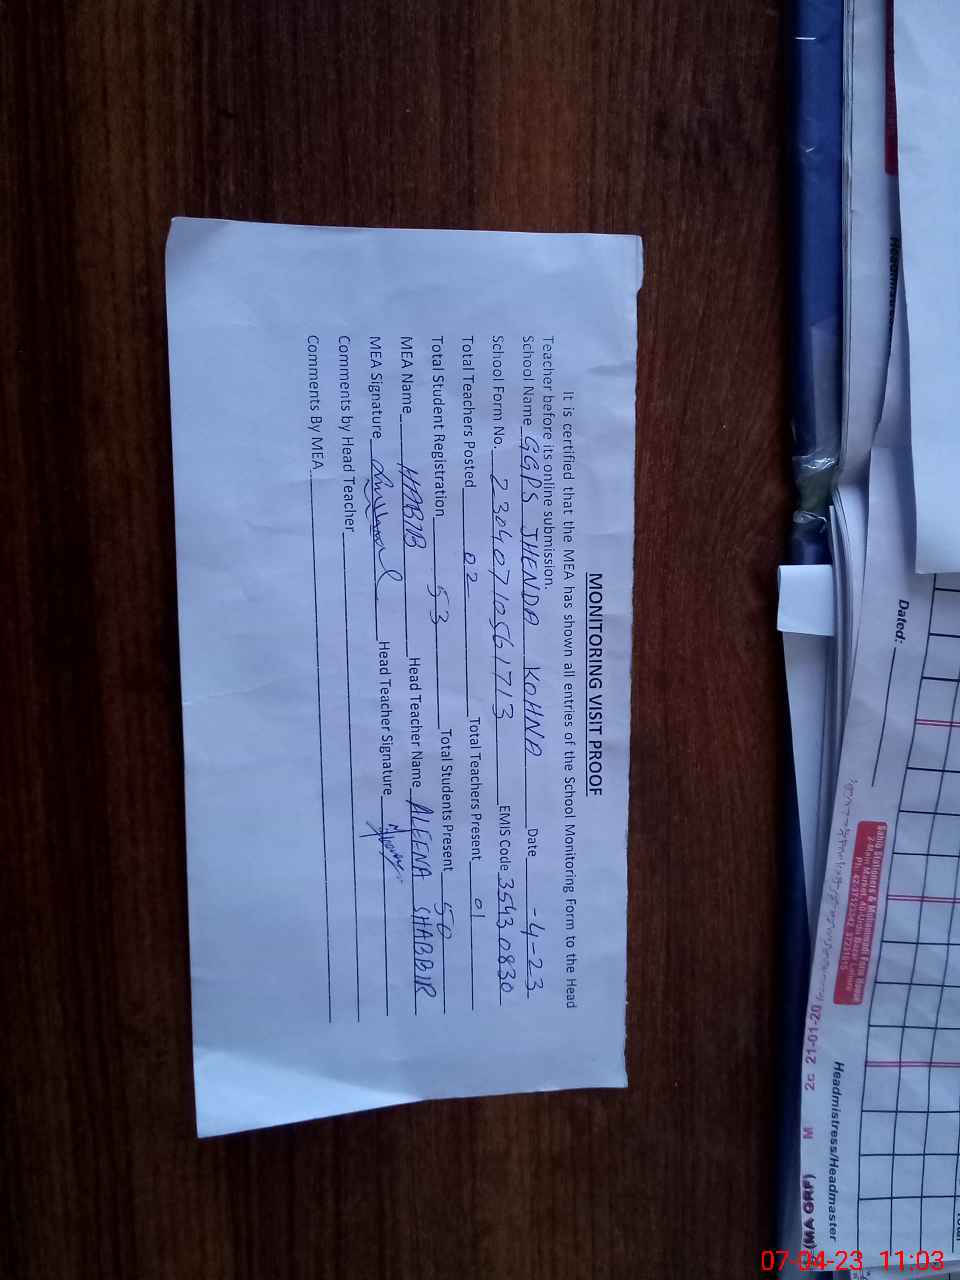 MONITORING VISIT PROOF
It is certified that the MEA has shown all entries of the School Monitoring Form to the Head
Teacher before its online submission.
School Name GGPS JHENDA KOHNA Date -4-23
School Form No. 23040710561713 EMIS Code 35430830
Total Teachers Posted 02 Total Teachers Present 01
Total Student Registration 53 Total Students Present 50
MEA Name HABIB Head Teacher Name ALEENA SHABBIR
MEA Signature Head Teacher Signature
Comments by Head Teacher
Comments By MEA
Dated:
Sabiq Stationers & Muhammadi Form House
Headmistress/Headmaster
21-01-20
M
07-04-23 11:03